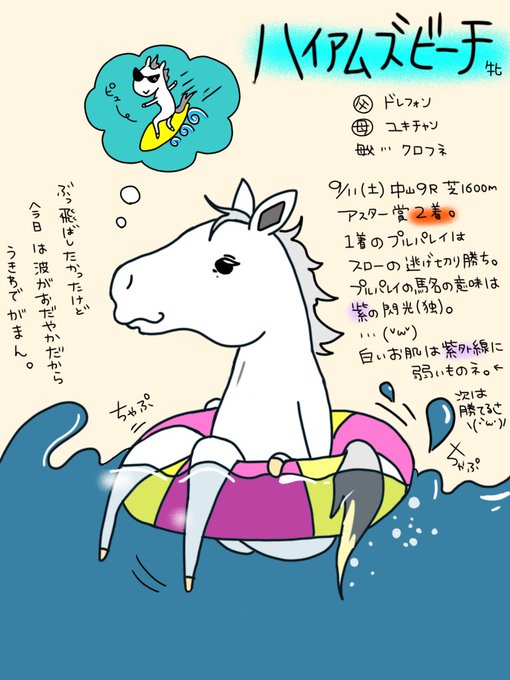 ハイアムズビーチ 牝
父 ドレフォン
母 ユキチャン
母父… クロフネ
9/11(土) 中山9R 芝1600m
アスター賞 2着。
1着のプルパレイは
スローの逃げ切り勝ち。
プルパレイの馬名の意味は
紫の閃光(独)。
…(˘ω˘)
白いお肌は紫外線に
弱いものネ。←
次は
勝てるさ
\(˘ω˘)/
ぴゅーん
ぶっ飛ばしたかったけど
今日は波がおだやかだから
うきわでがまん。
ちゃぷ
ちゃぷ